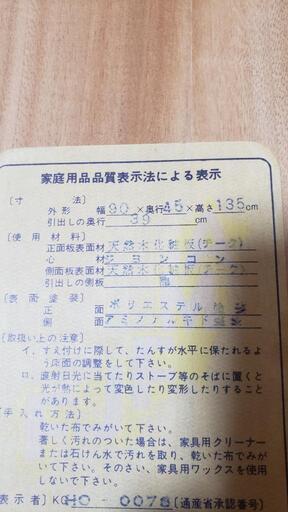 家庭用品品質表示法による表示
〔寸 法〕
外形 幅90×奥行45×高さ135cm
引出しの奥行 39 cm
〔使用材料〕
正面板表面材 天然木化粧板(チーク)
心 材
側面板表面材 天然木化粧板(チーク)
引出しの側板
〔表面塗装〕
正 面 ポリエステル樹脂
側 面 アミノアルキド樹脂
〔取扱い上の注意〕
イ、すえ付けに際して、たんすが水平に保たれるよ
う床面の調整をして下さい。
ロ、直射日光に当たりストーブ等のそばに置くと
光や熱によって変色したり変形したりすること
があります。
〔手入れ方法〕
乾いた布でみがいて下さい。
著しく汚れのついた場合は、家具用クリーナー
または石けん水で汚れを取り、乾いた布でみが
いて下さい。そのさい、家具用ワックスを使用
しないで下さい。
表示者〕KC HO-0078〔通産省承認番号〕